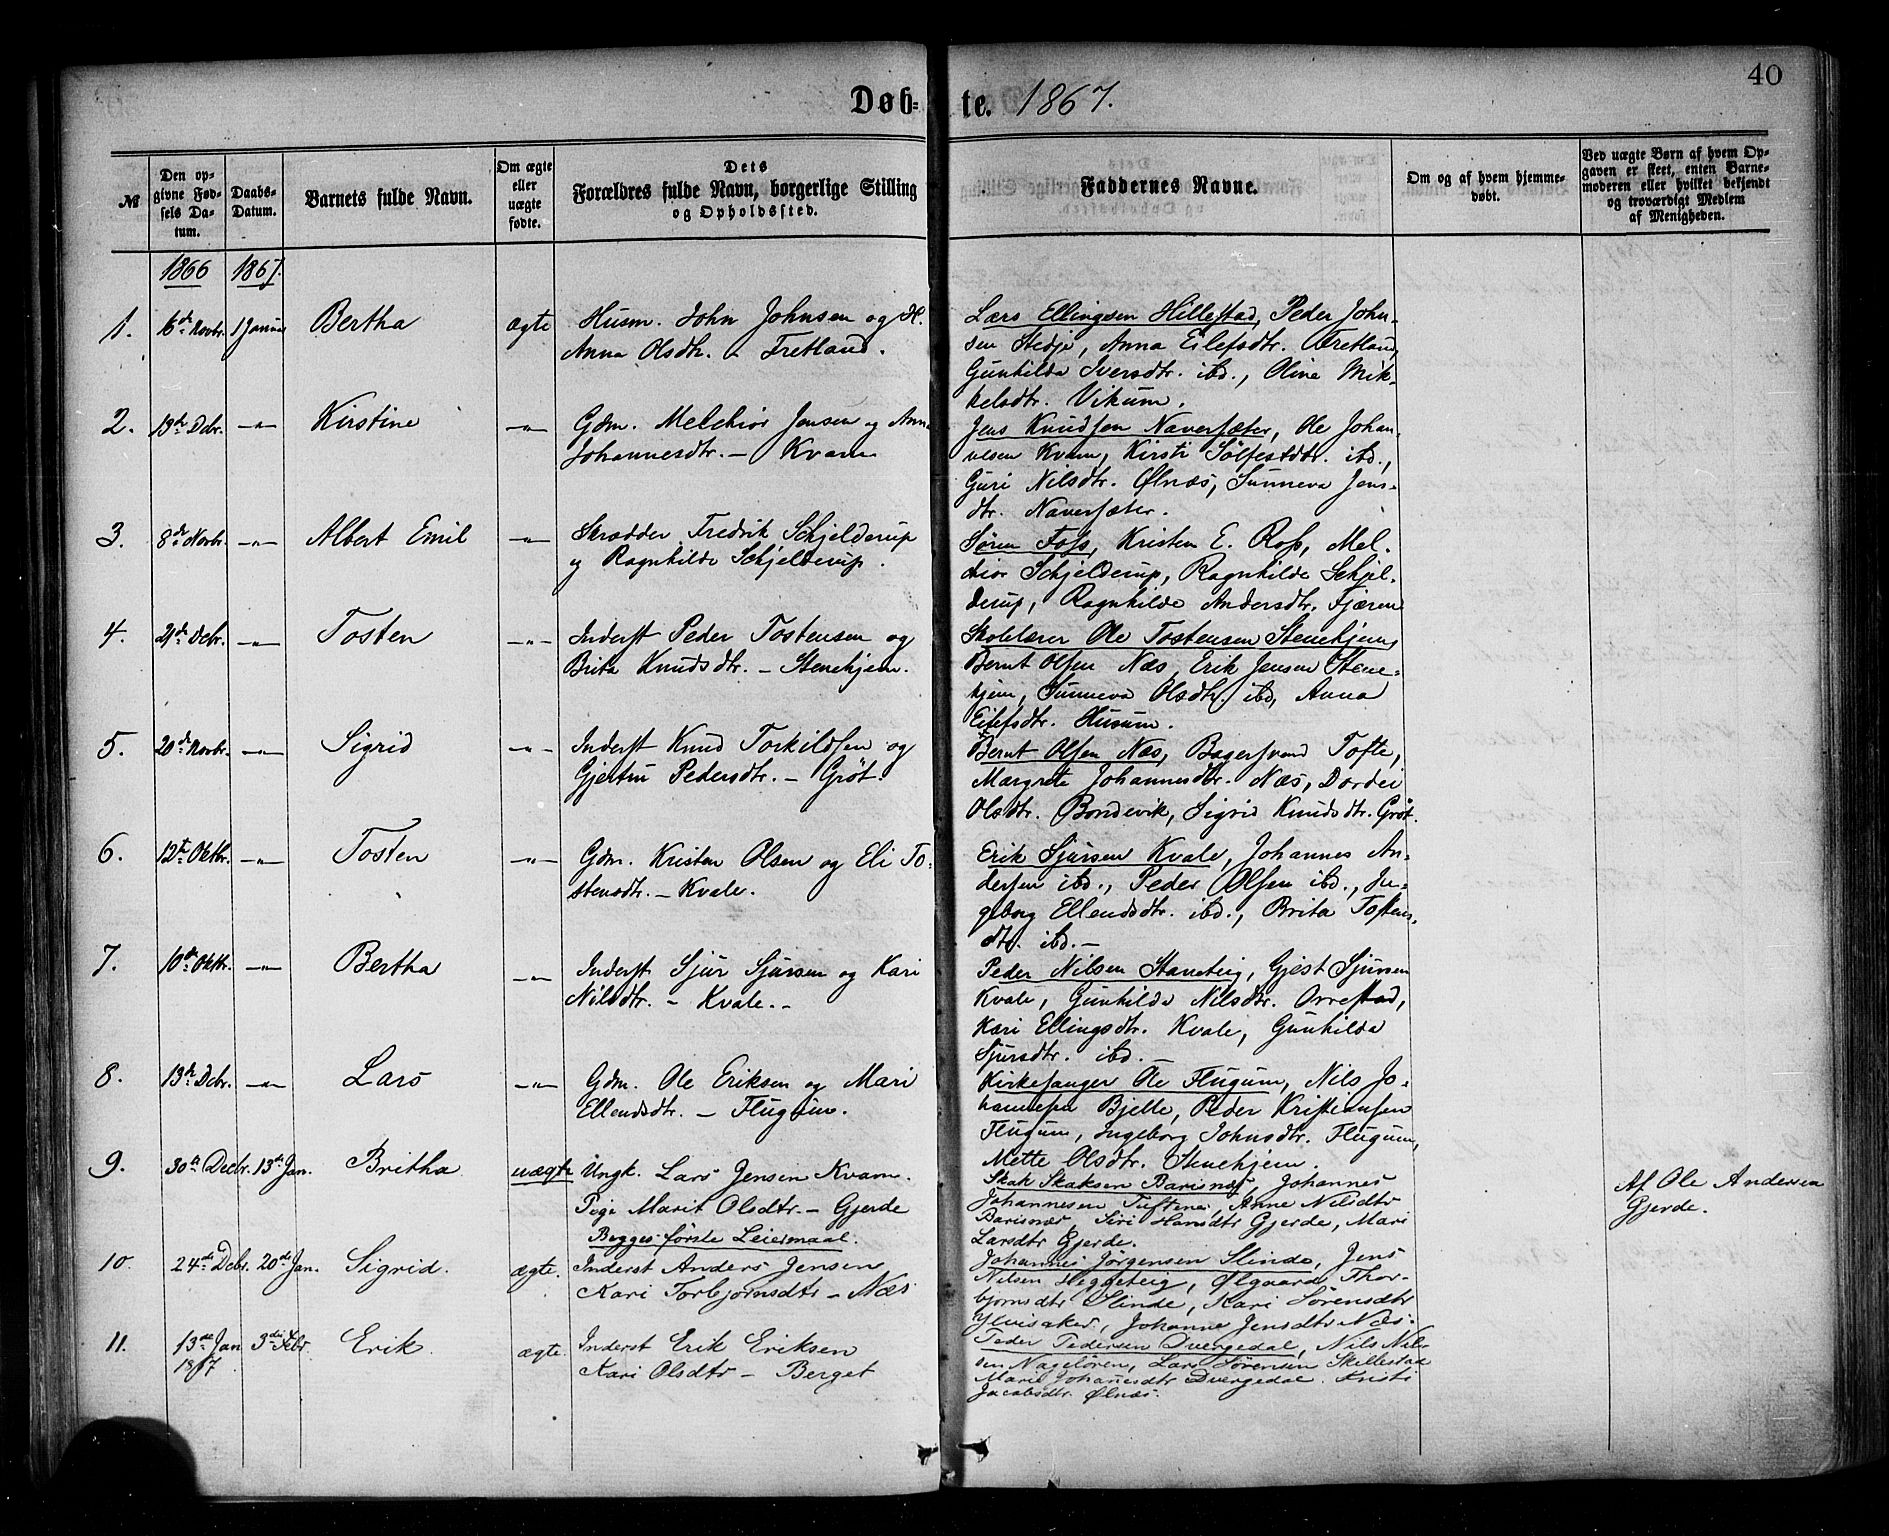 40
Døb- te. 1867.
№
Den opgivne Fødsels Datum.
Daabs-Datum.
Barnets fulde Navn.
Om ægte eller uægte fødte.
Dets Forældres fulde Navn, borgerlige Stilling og Opholdssted.
Faddernes Navne.
Om og af hvem hjemmedøbt.
Ved uægte Børn af hvem Opgaven er skeet, enten Barnemoderen eller hvilket bekjendt og troværdigt Medlem af Menigheden.
1866 1867.
1. 16de Novbr. 1 Januar Bertha ægte
Husm. John Johnsen og H.
Anna Olsdtr. – Fretland.
Lars Ellingsen Hillestad, Peder John-
sen Stedje, Anna Eilefsdtr. Fretland,
Gunhilda Iversdtr. ibd., Oline Mik-
kelsdtr. Vikum.
2. 19de Dcbr. –"– Kirstine –"–
Gdm. Melchior Jensen og Anna
Johannesdtr. – Kvam
Jens Knudsen Naversæter, Ole Johan-
nesen Kvam, Kirsti Sølfestdtr. ibd.,
Guri Nilsdtr. Ølnæs, Sunneva Jens-
dtr. Naversæter.
3. 8de Novbr. –"– Albert Emil –"–
Skrædder Fredrik Schjelderup
og Ragnhilde Schjelderup.
Søren Foss, Kristen E. Ross, Mel-
chior Schjelderup, Ragnhilde Schjel-
derup, Ragnhilde Andersdtr. Fjæren
4. 21de Dcbr. –"– Tosten –"–
Inderst Peder Tostensen og
Brita Knudsdtr. – Stenehjem.
Skolelærer Ole Tostensen Stenehjem,
Bernt Olsen Næs, Erik Jensen Stene-
hjem, Sunneva Olsdtr. ibd, Anna
Eilefsdtr. Husum.
5. 20de Novbr. –"– Sigrid –"–
Inderst Knud Torkildsen og
Gjertru Pedersdtr. – Grøt.
Bernt Olsen Næs, Bagersvend Tofte,
Margrete Johannesdtr. Næs, Dordei
Olsdtr. Bondevik, Sigrid Knudsdtr. Grøt.
6. 12te Oktbr. –"– Tosten –"–
Gdm. Kristen Olsen og Eli To-
stensdtr. – Kvale.
Erik Sjursen Kvale, Johannes An-
dersen ibd., Peder Olsen ibd., In-
geborg Ellendsdtr. ibd., Brita Tostens-
dtr. ibd. –
7. 10de Oktbr. –"– Bertha –"–
Inderst Sjur Sjursen og Kari
Nilsdtr. – Kvale. –
Peder Nilsen Stamsteig, Gjest Sjursen
Kvale, Gunhilda Nilsdtr. Orrestad,
Kari Ellingsdtr. Kvale, Gunhilda
Sjursdtr. ibd. –
8. 13de Dcbr. –"– Lars –"–
Gdm. Ole Eriksen og Mari
Ellendsdtr. – Flugum.
Kirkesanger Ole Flugum, Nils Jo-
hannesen Bjelle, Peder Kristiansen
Flugum, Ingeborg Johnsdtr. Flugum,
Mette Olsdtr. Stenehjem.
9. 30te Decbr. 13de Jan. Britha uægte
Ungk. Lars Jensen Kvam.
Pige Marit Olsdtr – Gjerde
Begges første Leiermaal.
Skak Skaksen Barsnæs, Johannes
Johannesen Tuftene, Anne Nilsdtr
Barsnæs, Siri Hansdtr Gjerde, Mari
Larsdtr Gjerde.
Af Ole Andersen
Gjerde.
10. 24de Dcbr. 20de Jan. Sigrid. ægte.
Inderst Anders Jensen
Kari Torbjørnsdtr – Næs
Johannes Jørgensen Slinde, Jens
Nilsen Heggeteig, Ølgaard Thor-
bjornsdtr Slinde, Kari Sørensdtr
Ylvisaker, Johanne Jensdtr Næs.
11. 13de Jan 1867 3die Febr. Erik. ægte.
Inderst Erik Eriksen
Kari Olsdtr – Berget
Peder Pedersen Dvergedal, Nils Nil-
sen Nageløren, Lars Sørensen Skillestad
Mari Johannesdtr Dvergedal. Kristi
Jacobsdtr. Ølnæs.